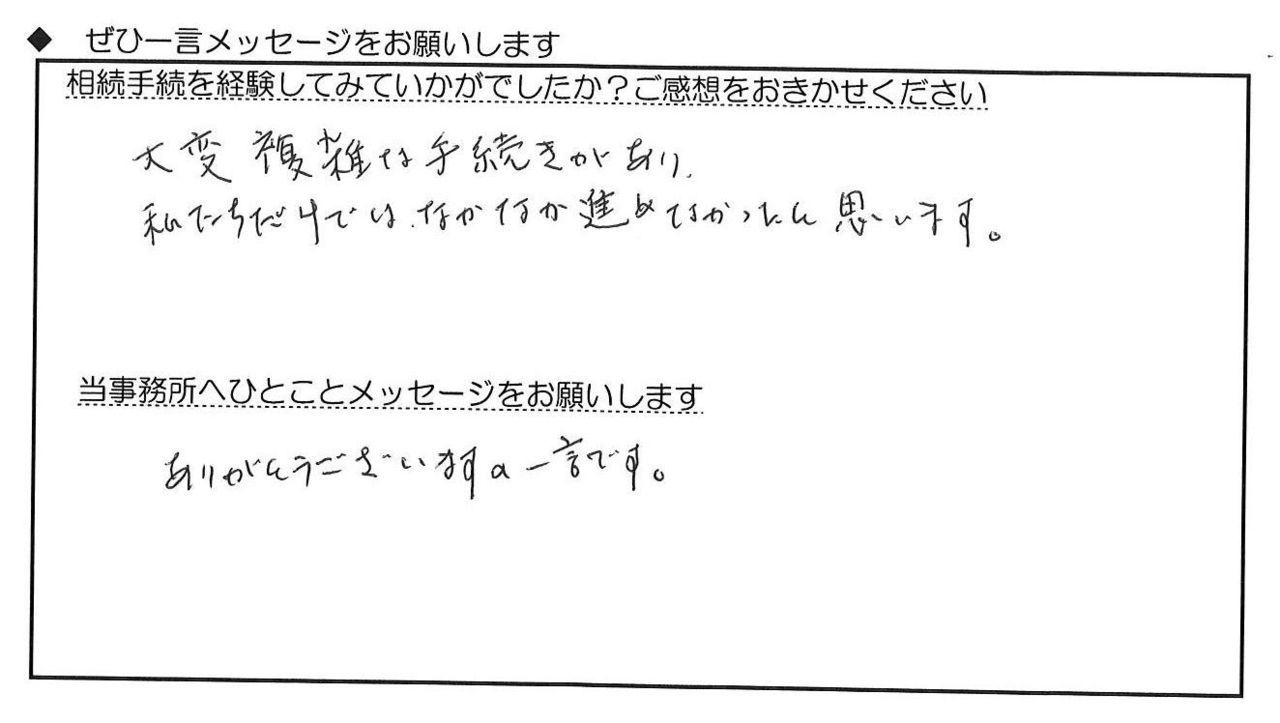 ◆ ぜひ一言メッセージをお願いします
相続手続を経験してみていかがでしたか？ご感想をおきかせください
大変複雑な手続きがあり、
私たちだけでは、なかなか進めなかったと思います。
当事務所へひとことメッセージをお願いします
ありがとうございますの一言です。